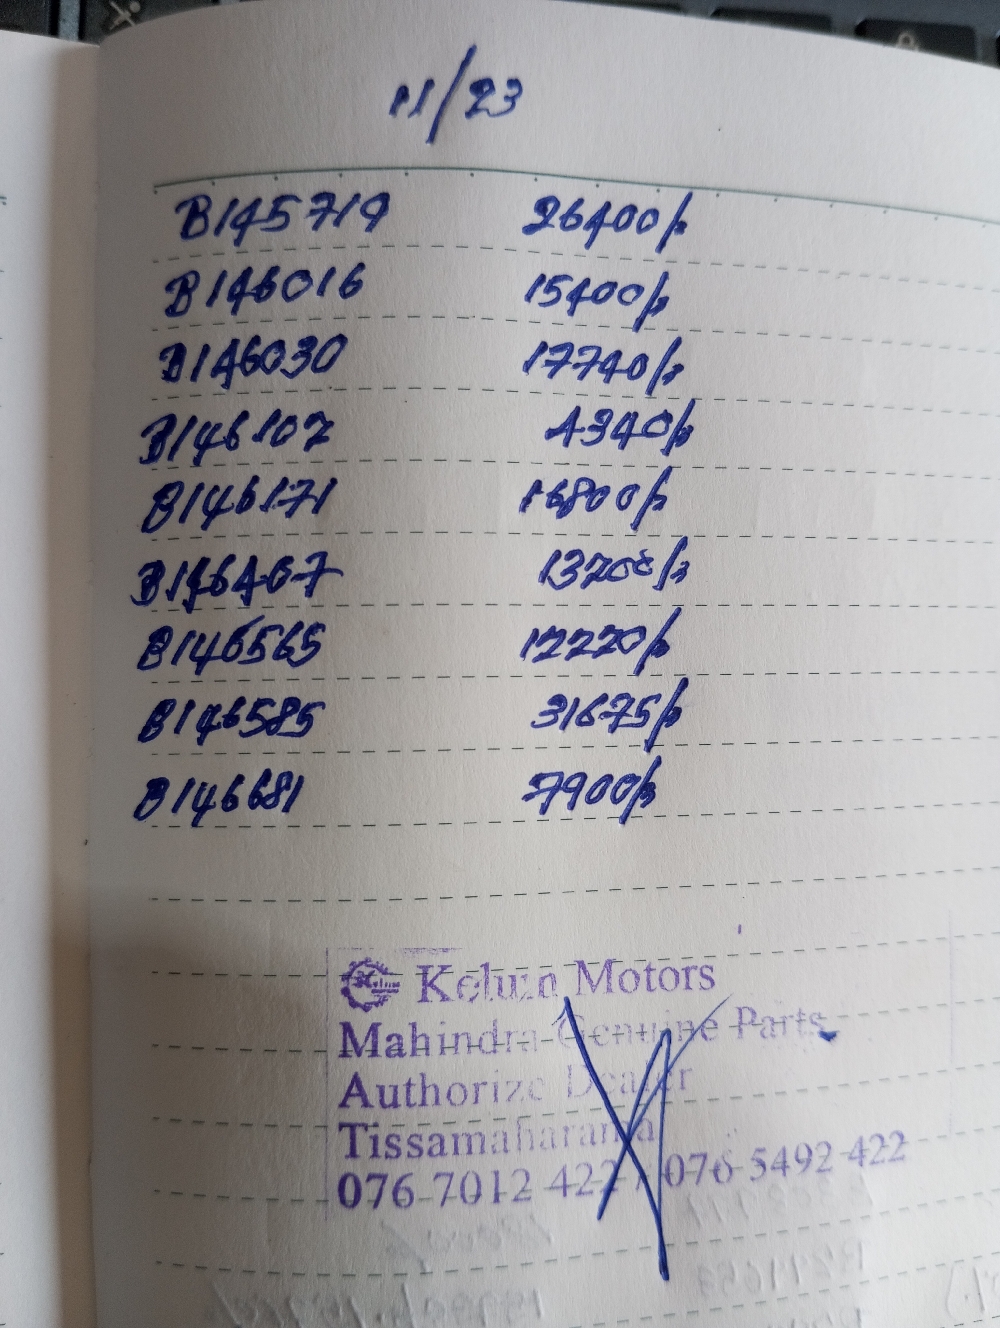 11/23
B145719 26400/=
B146016 15400/=
B146030 17740/=
B146107 4340/=
B146171 16800/=
B146467 13700/=
B146565 12220/=
B146585 31675/=
B146681 7900/=
Motors
Mahindra Genuine Parts
Authorize Dealer
Tissamaharama
076-7012 422 / 076-5492 422